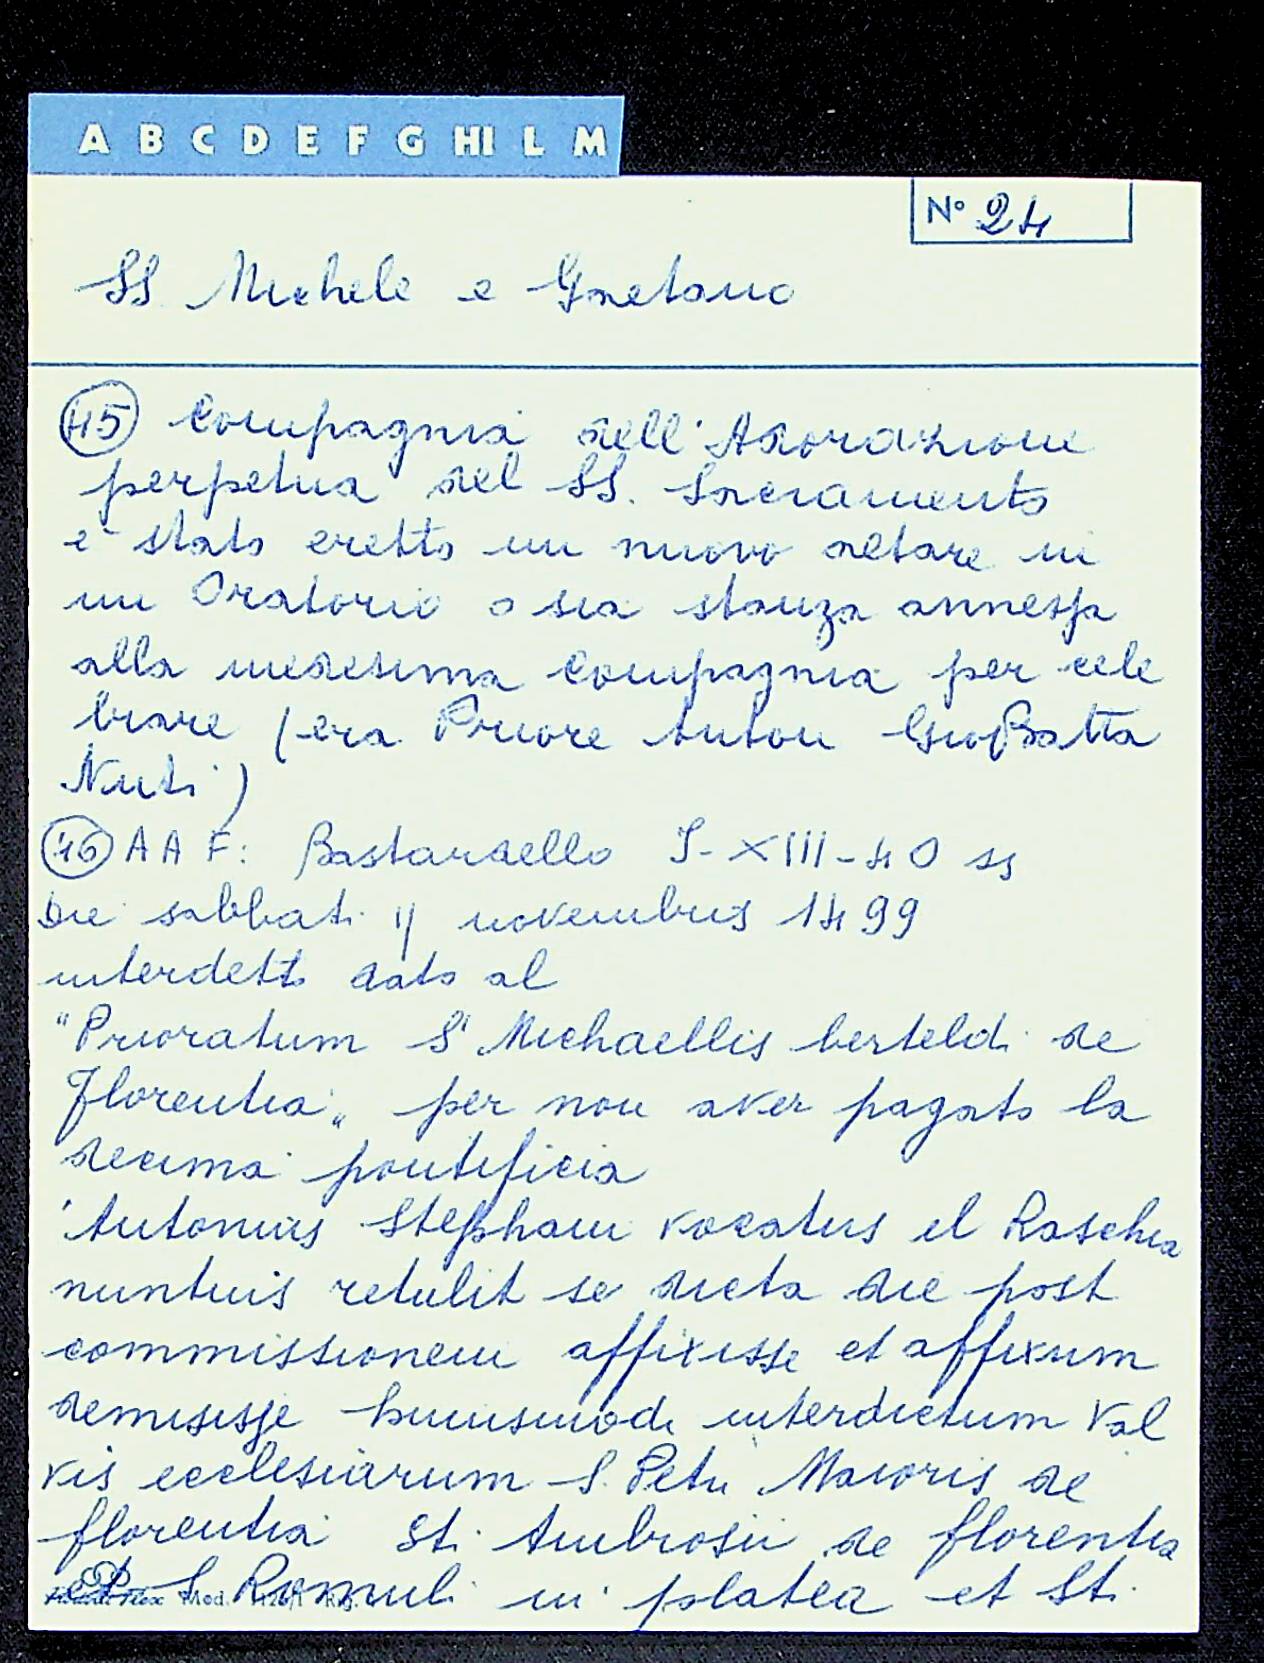 A B C D E F G HI L M
N° 24
SS. Michele e Gaetano
45 Compagnia dell'Adorazione
perpetua del SS. Sacramento
e' stato eretto un nuovo altare in
un Oratorio o sia stanza annessa
alla medesima Compagnia per cele
brare (era Priore Anton GioBatta
Nuti)
46 A A F: Bastardello I-XIII-40 ss
Die sabbati 4 novembris 1499
interdetto dato al
"Prioratum S' Michaellis berteldi de
Florentia" per non aver pagato la
decima pontificia
'Antonius Stephani vocatus el Raschia
nuntius retulit se dicta die post
commissionem affixisse et affixum
demisisse huiusmodi interdictum val
vis ecclesiarum S. Petri Maioris de
florentia Sti Ambrosii de florentia
et S Romuli in platea et Sti
Mod.